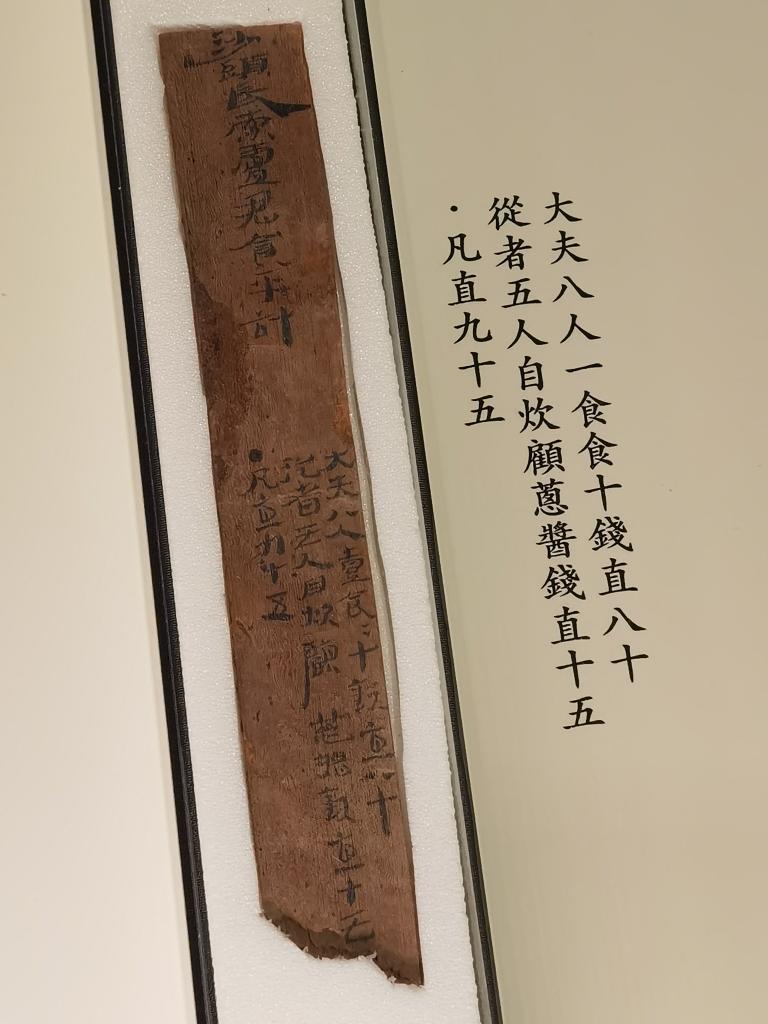 大夫八人一食食十錢直八十
從者五人自炊顧蔥醬錢直十五
・凡直九十五
沙頭食平計
大夫八人壹食=十錢直八十
從者五人自炊顧蔥醬錢直十五
●凡直九十五